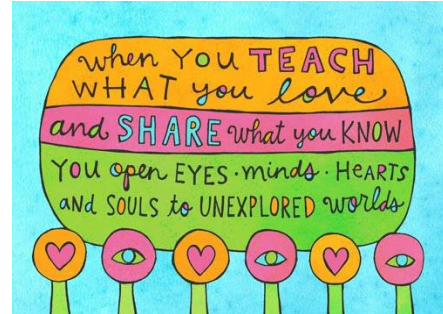 when YOU TEACH
WHAT you love
and SHARE what you KNOW
YOU open EYES · minds · HeARTS
and SOULS to UNEXPLORED worlds